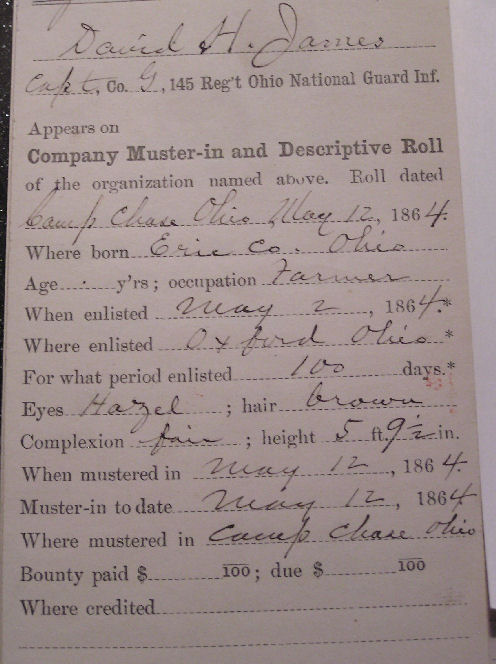 David H. James
Capt., Co. G, 145 Reg't Ohio National Guard Inf.
Appears on
Company Muster-in and Descriptive Roll
of the organization named above. Roll dated
Camp Chase Ohio May 12, 1864.
Where born Erie Co. Ohio
Age y'rs; occupation Farmer
When enlisted May 2, 1864.*
Where enlisted Oxford Ohio *
For what period enlisted 100 days.*
Eyes Hazel; hair brown
Complexion fair; height 5 ft. 9½ in.
When mustered in May 12, 1864.
Muster-in to date May 12, 1864
Where mustered in Camp Chase Ohio
Bounty paid $ 100; due $ 100
Where credited